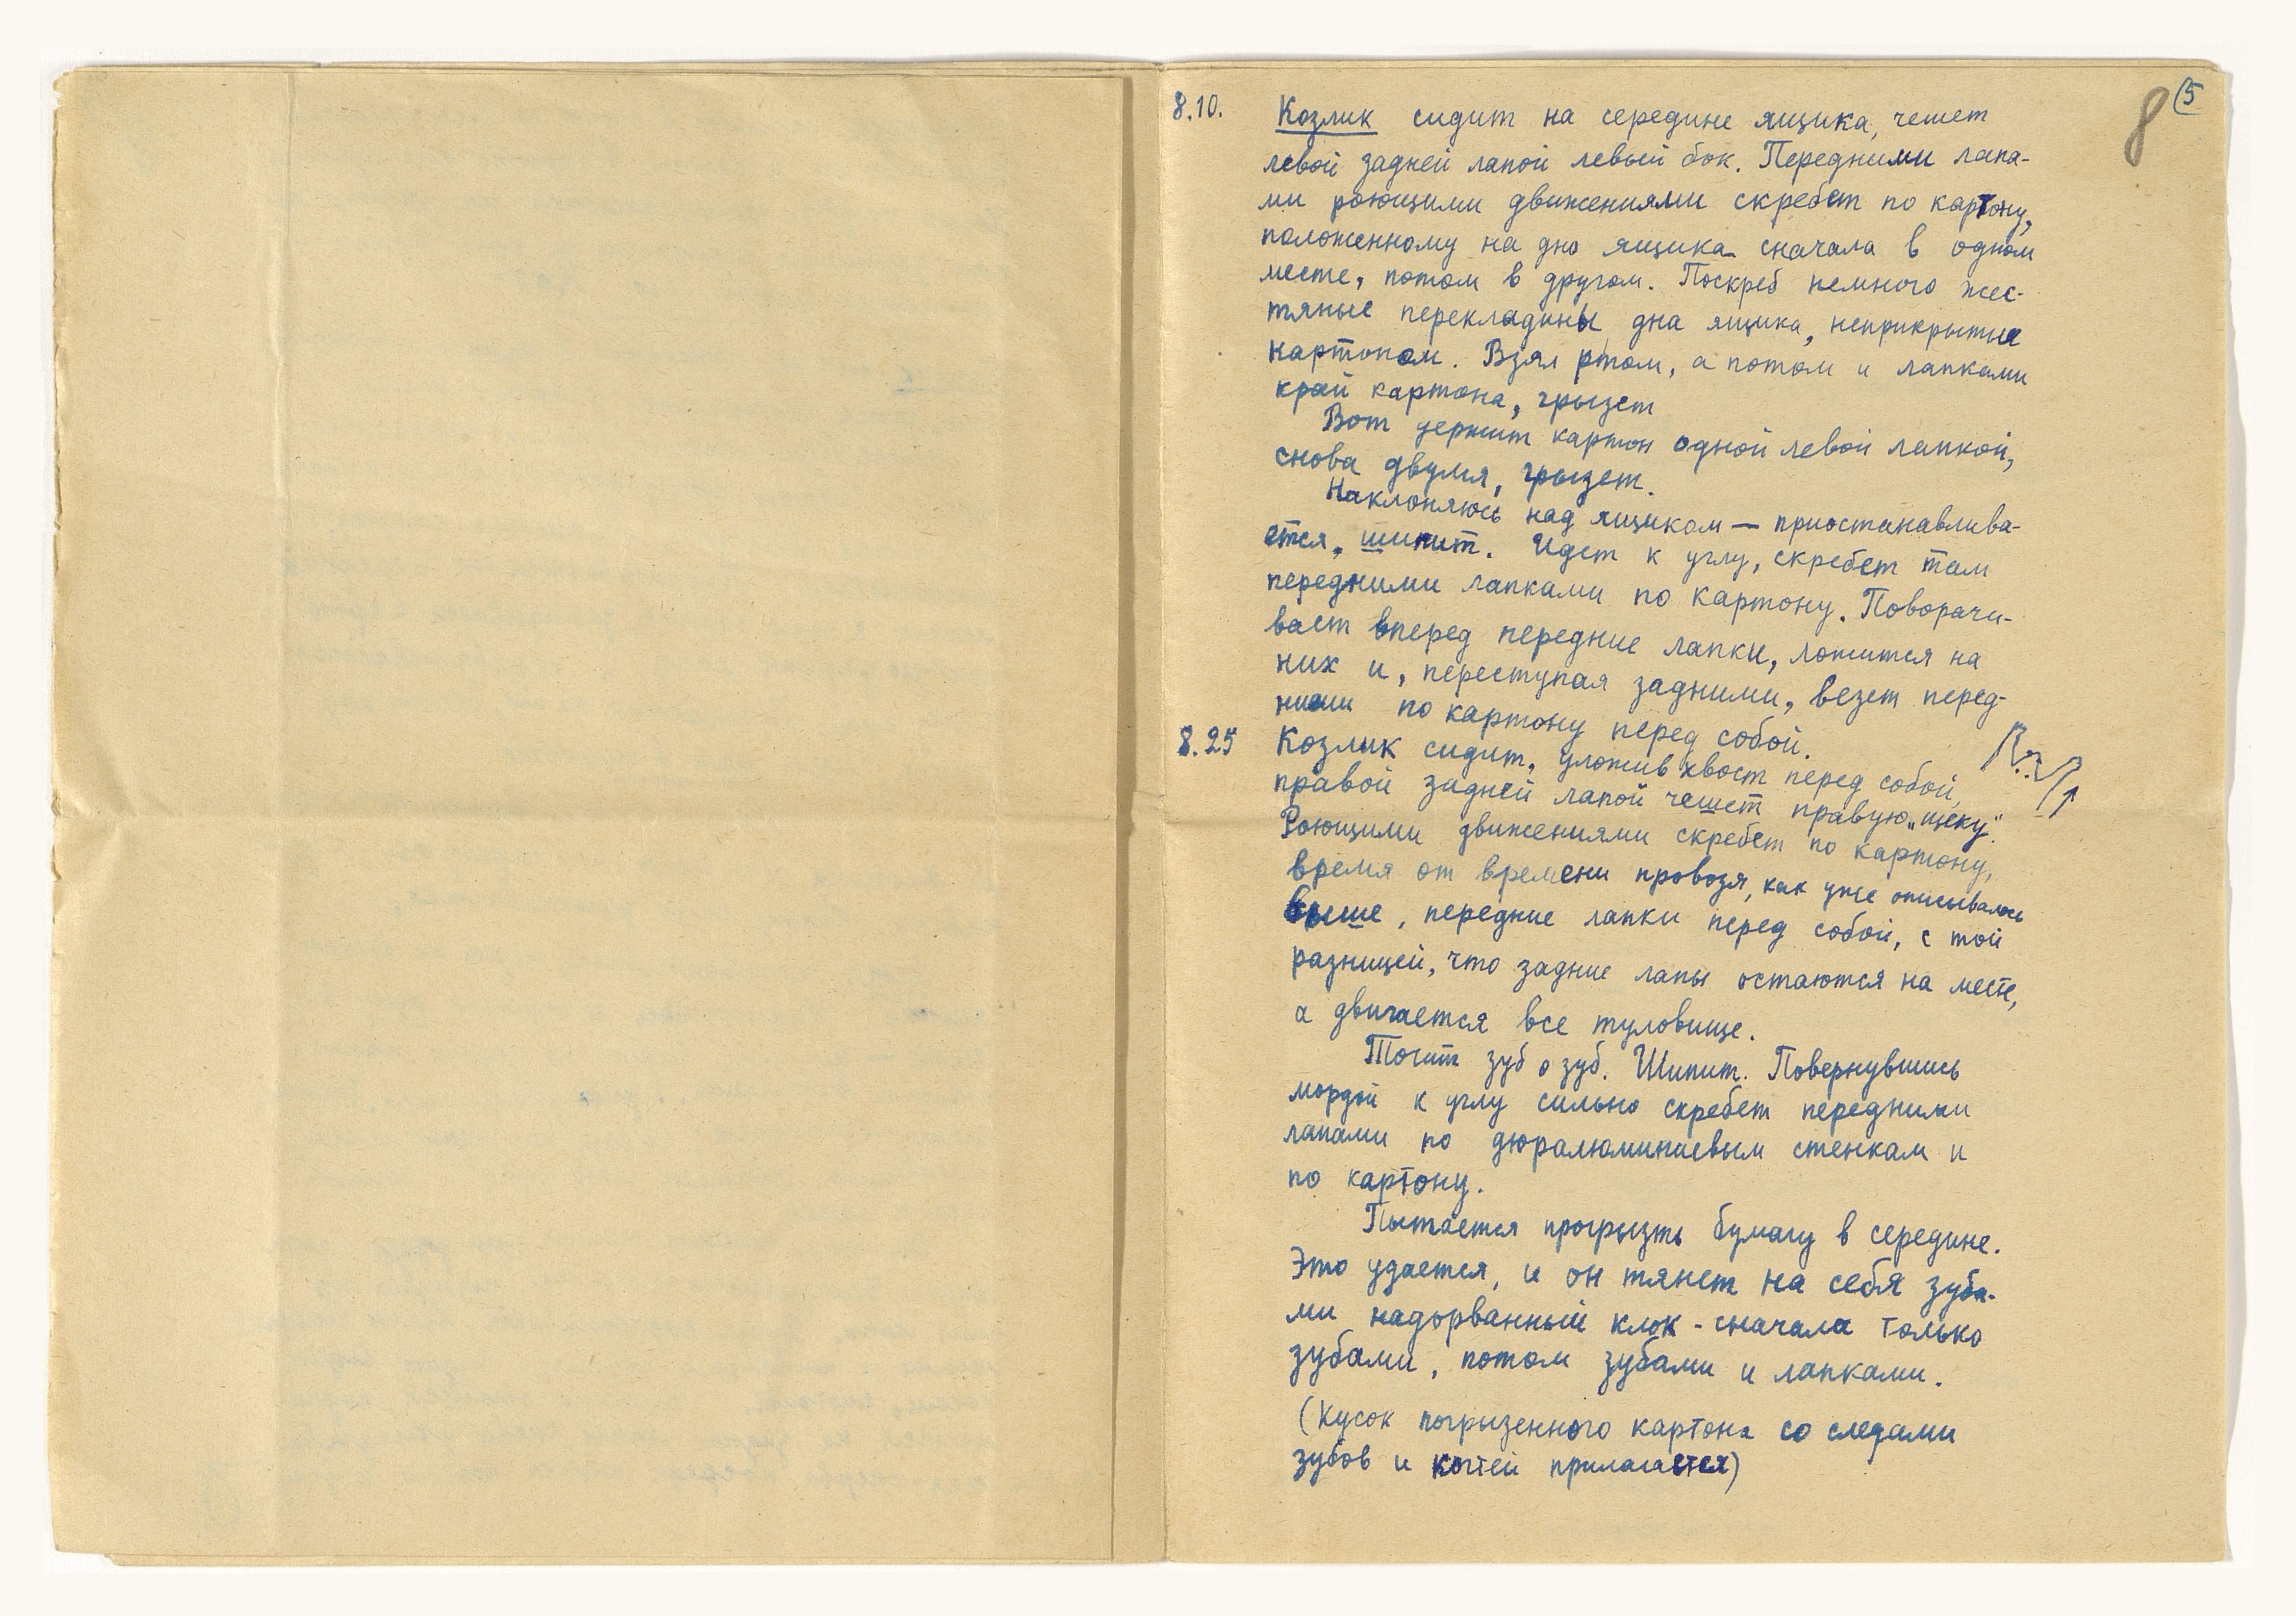 8 (5
8.10. Козлик сидит на середине ящика, чешет
левой задней лапой левый бок. Передними лапа-
ми роющими движениями скребет по картону,
положенному на дно ящика сначала в одном
месте, потом в другом. Поскреб немного жес-
тяные перекладины дна ящика, неприкрытые
картоном. Взял ртом, а потом и лапками
край картона, грызет
Вот держит картон одной левой лапкой,
снова двумя, грызет.
Наклоняюсь над ящиком — приостанавлива-
ется, шипит. Идет к углу, скребет там
передними лапками по картону. Поворачи-
вает вперед передние лапки, ложится на
них и, переступая задними, везет перед-
ними по картону перед собой.
8.25 Козлик сидит, уложив хвост перед собой,
правой задней лапой чешет правую „щеку".
Роющими движениями скребет по картону,
время от времени провозя, как уже описывалось
выше, передние лапки перед собой, с той
разницей, что задние лапы остаются на месте,
а двигается все туловище.
Точит зуб о зуб. Шипит. Повернувшись
мордой к углу сильно скребет передними
лапами по дюралюминиевым стенкам и
по картону.
Пытается прогрызть бумагу в середине.
Это удается, и он тянет на себя зуба-
ми надорванный клок - сначала только
зубами, потом зубами и лапками.
(Кусок погрызенного картона со следами
зубов и когтей прилагается)